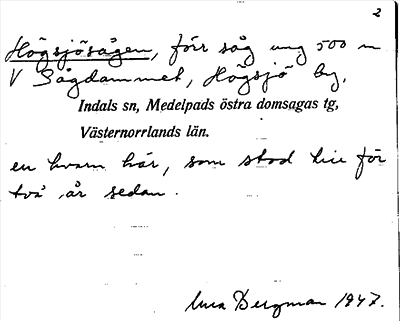 2
Högsjösågen, förr såg ung 500 m
V Sågdammet, Högsjö by,
Indals sn, Medelpads östra domsagas tg,
Västernorrlands län.
en kvarn här, som stod till för
två år sedan.
Bergman 1947.